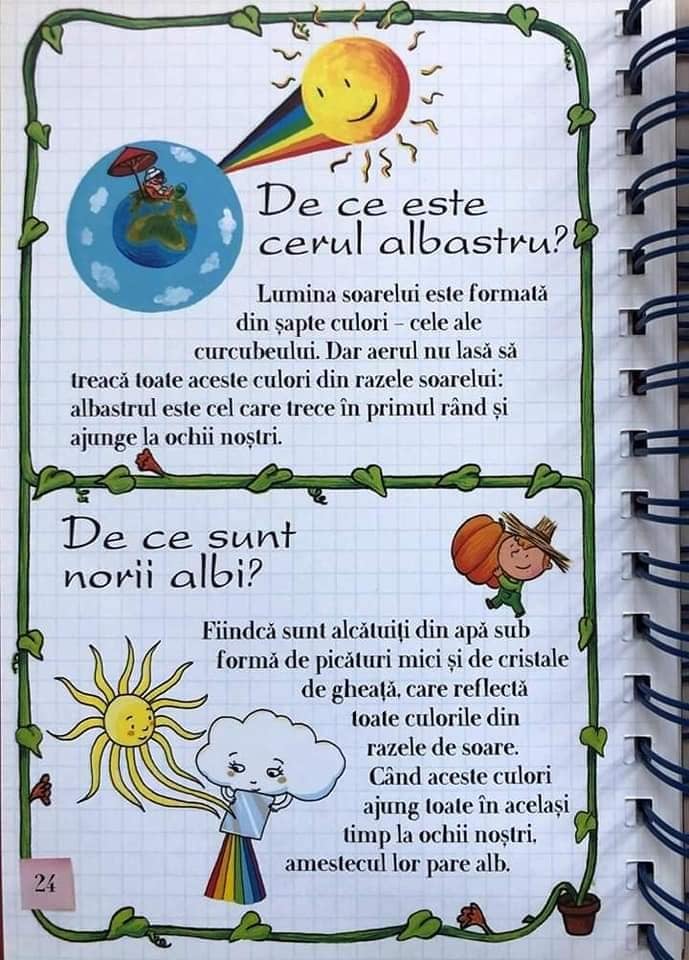 De ce este
cerul albastru?
Lumina soarelui este formată
din șapte culori – cele ale
curcubeului. Dar aerul nu lasă să
treacă toate aceste culori din razele soarelui:
albastrul este cel care trece în primul rând și
ajunge la ochii noștri.
De ce sunt
norii albi?
Fiindcă sunt alcătuiți din apă sub
formă de picături mici și de cristale
de gheață, care reflectă
toate culorile din
razele de soare.
Când aceste culori
ajung toate în același
timp la ochii noștri,
amestecul lor pare alb.
24